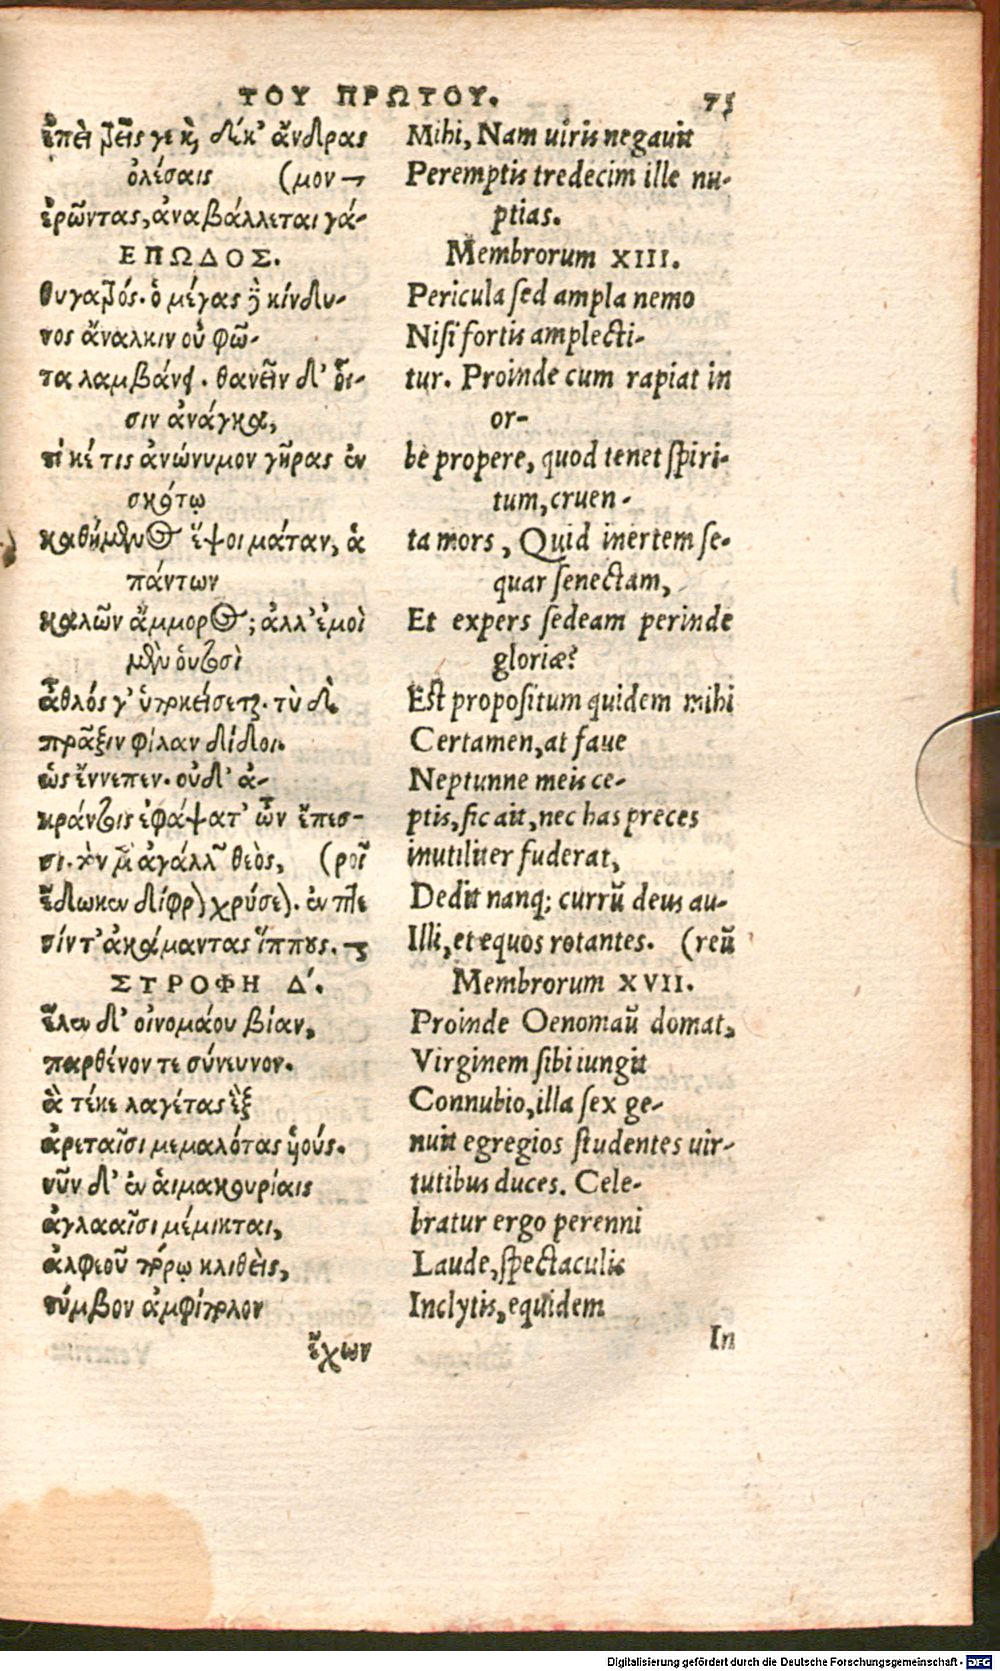 ΤΟΥ ΠΡΩΤΟΥ. 75
ἐπεὶ τρεῖς γε καὶ δέκ' ἄνδρας
ὀλέσαις (μον
ἐρῶντας, ἀναβάλλεται γά-
ΕΠΩΔΟΣ.
θυγατρός. ὁ μέγας δὲ κίνδυ-
νος ἄναλκιν οὐ φῶ-
τα λαμβάνει. θανεῖν δ' οἷ-
σιν ἀνάγκα,
τί κέ τις ἀνώνυμον γῆρας ἐν
σκότῳ
καθήμενος ἕψοι μάταν, ἁ
πάντων
καλῶν ἄμμορος; ἀλλ' ἐμοὶ
μὲν οὑτοσὶ
ἆθλός γ' ὑποκείσεται. τὺ δὲ
πρᾶξιν φίλαν δίδοι.
ὡς ἔννεπεν. οὐδ' ἀ-
κράντοις ἐφάψατ' ὦν ἔπεσ-
σι. τὸν μὲν ἀγάλλων θεὸς, (ροῖ
ἔδωκεν δίφρον χρύσεον. ἐν πτε
σίν τ' ἀκάμαντας ἵππους.
ΣΤΡΟΦΗ Δ΄.
ἕλεν δ' οἰνομάου βίαν,
παρθένον τε σύνευνον.
ἃ τέκε λαγέτας ἓξ
ἀρεταῖσι μεμαλότας υἱούς.
νῦν δ' ἐν αἱμακουρίαις
ἀγλααῖσι μέμικται,
ἀλφεοῦ πόρῳ κλιθεὶς,
τύμβον ἀμφίπολον
ἔχων
Mihi, Nam uiris negauit
Peremptis tredecim ille nu-
ptias.
Membrorum XIII.
Pericula sed ampla nemo
Nisi fortis amplecti-
tur. Proinde cum rapiat in
or-
be propere, quod tenet spiri-
tum, cruen-
ta mors, Quid inertem se-
quar senectam,
Et expers sedeam perinde
gloriæ?
Est propositum quidem mihi
Certamen, at faue
Neptunne meis ce-
ptis, sic ait, nec has preces
inutiliter fuderat,
Dedit nanq; currũ deus au-
Illi, et equos rotantes. (reũ
Membrorum XVII.
Proinde Oenomaũ domat,
Virginem sibi iungit
Connubio, illa sex ge-
nuit egregios studentes uir-
tutibus duces. Cele-
bratur ergo perenni
Laude, spectaculis
Inclytis, equidem
In
Digitalisierung gefördert durch die Deutsche Forschungsgemeinschaft - DFG